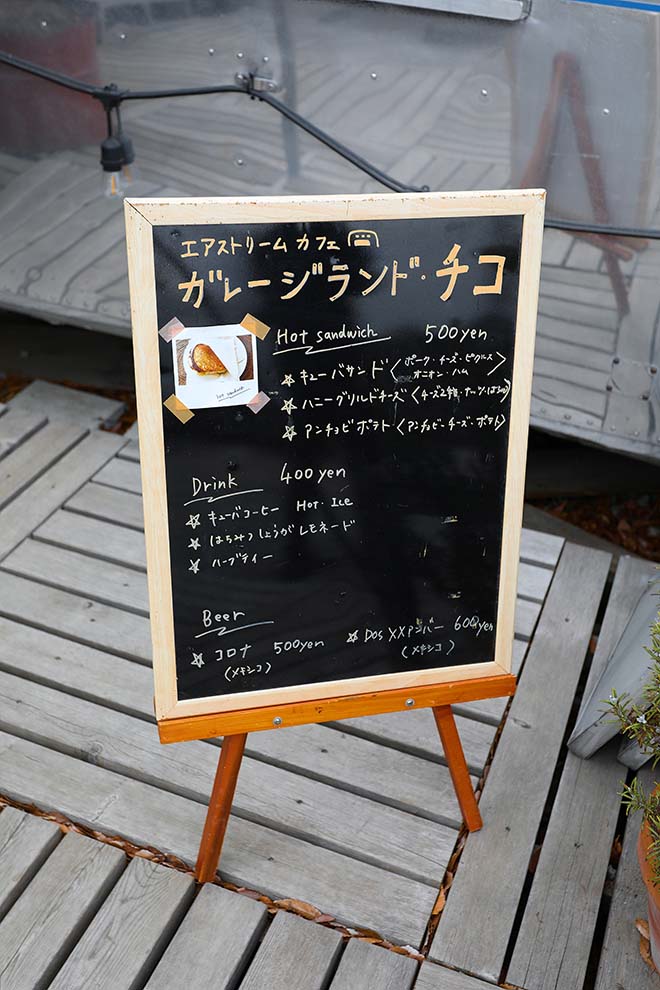 エアストリーム カフェ
ガレージランド・チコ
Hot sandwich 500yen
☆ キューバサンド〈ポーク・チーズ・ピクルス
オニオン・ハム〉
☆ ハニーグリルドチーズ〈チーズ2種・ナッツ・はちみつ〉
☆ アンチョビポテト〈アンチョビ・チーズ・ポテト〉
Hot sandwich
Drink 400yen
☆ キューバコーヒー Hot・Ice
☆ はちみつしょうがレモネード
☆ ハーブティー
Beer
☆ コロナ 500yen
(メキシコ)
☆ DOS XXアンバー 600yen
(メキシコ)